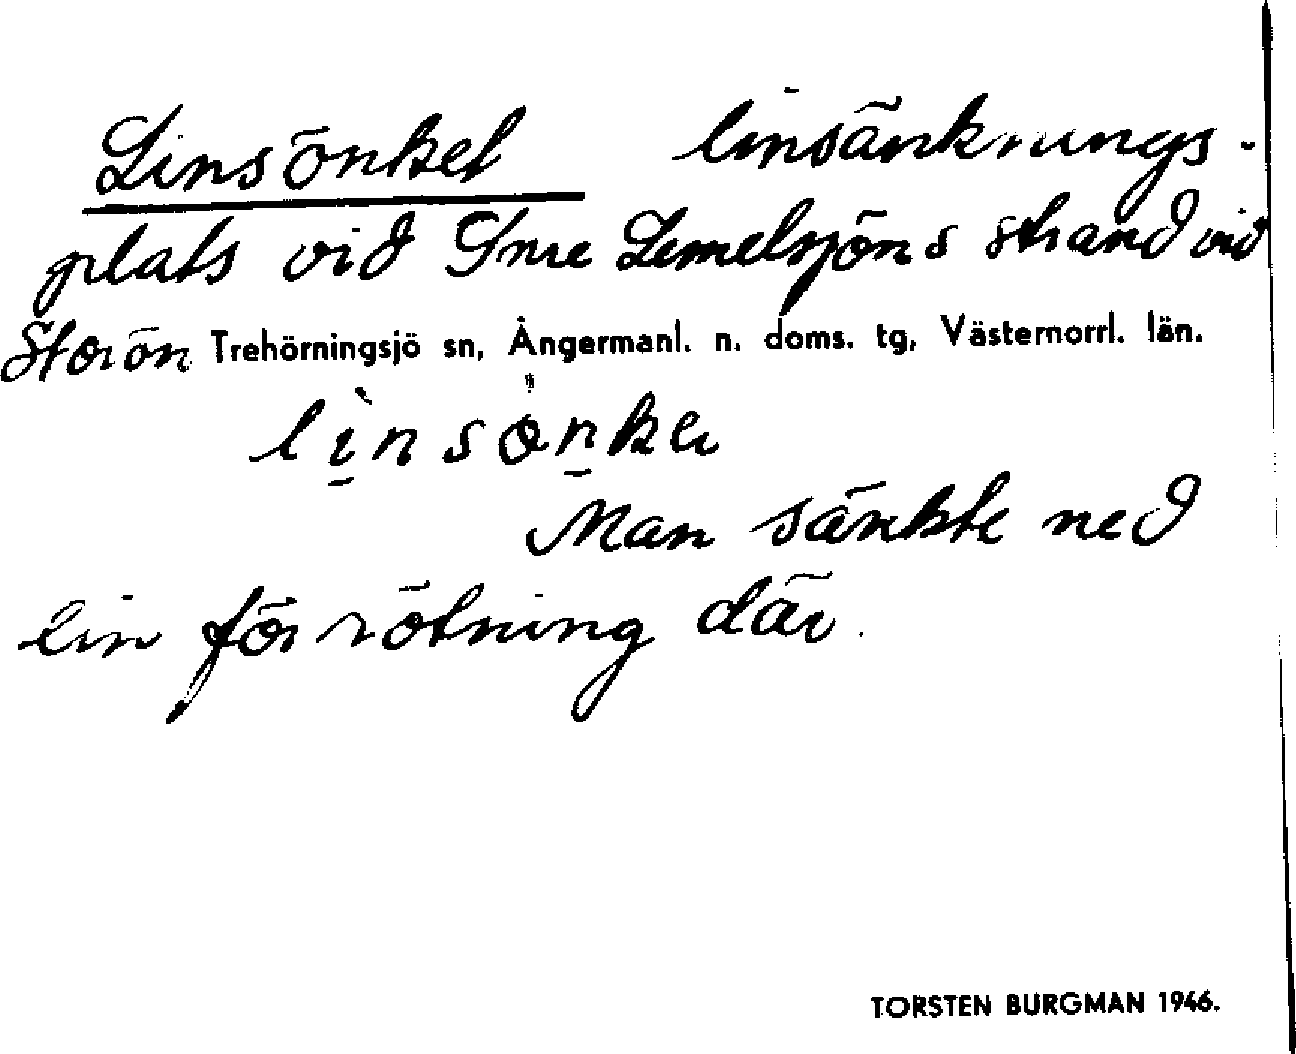 Linsönket linsänknings-
plats vid Inre Lemelsjöns strand vid
Storön Trehörningsjö sn, Ångermanl. n. doms. tg, Västernorrl. län.
lìnsönkα
Man sänkte ned
lin för rötning där.
TORSTEN BURGMAN 1946.